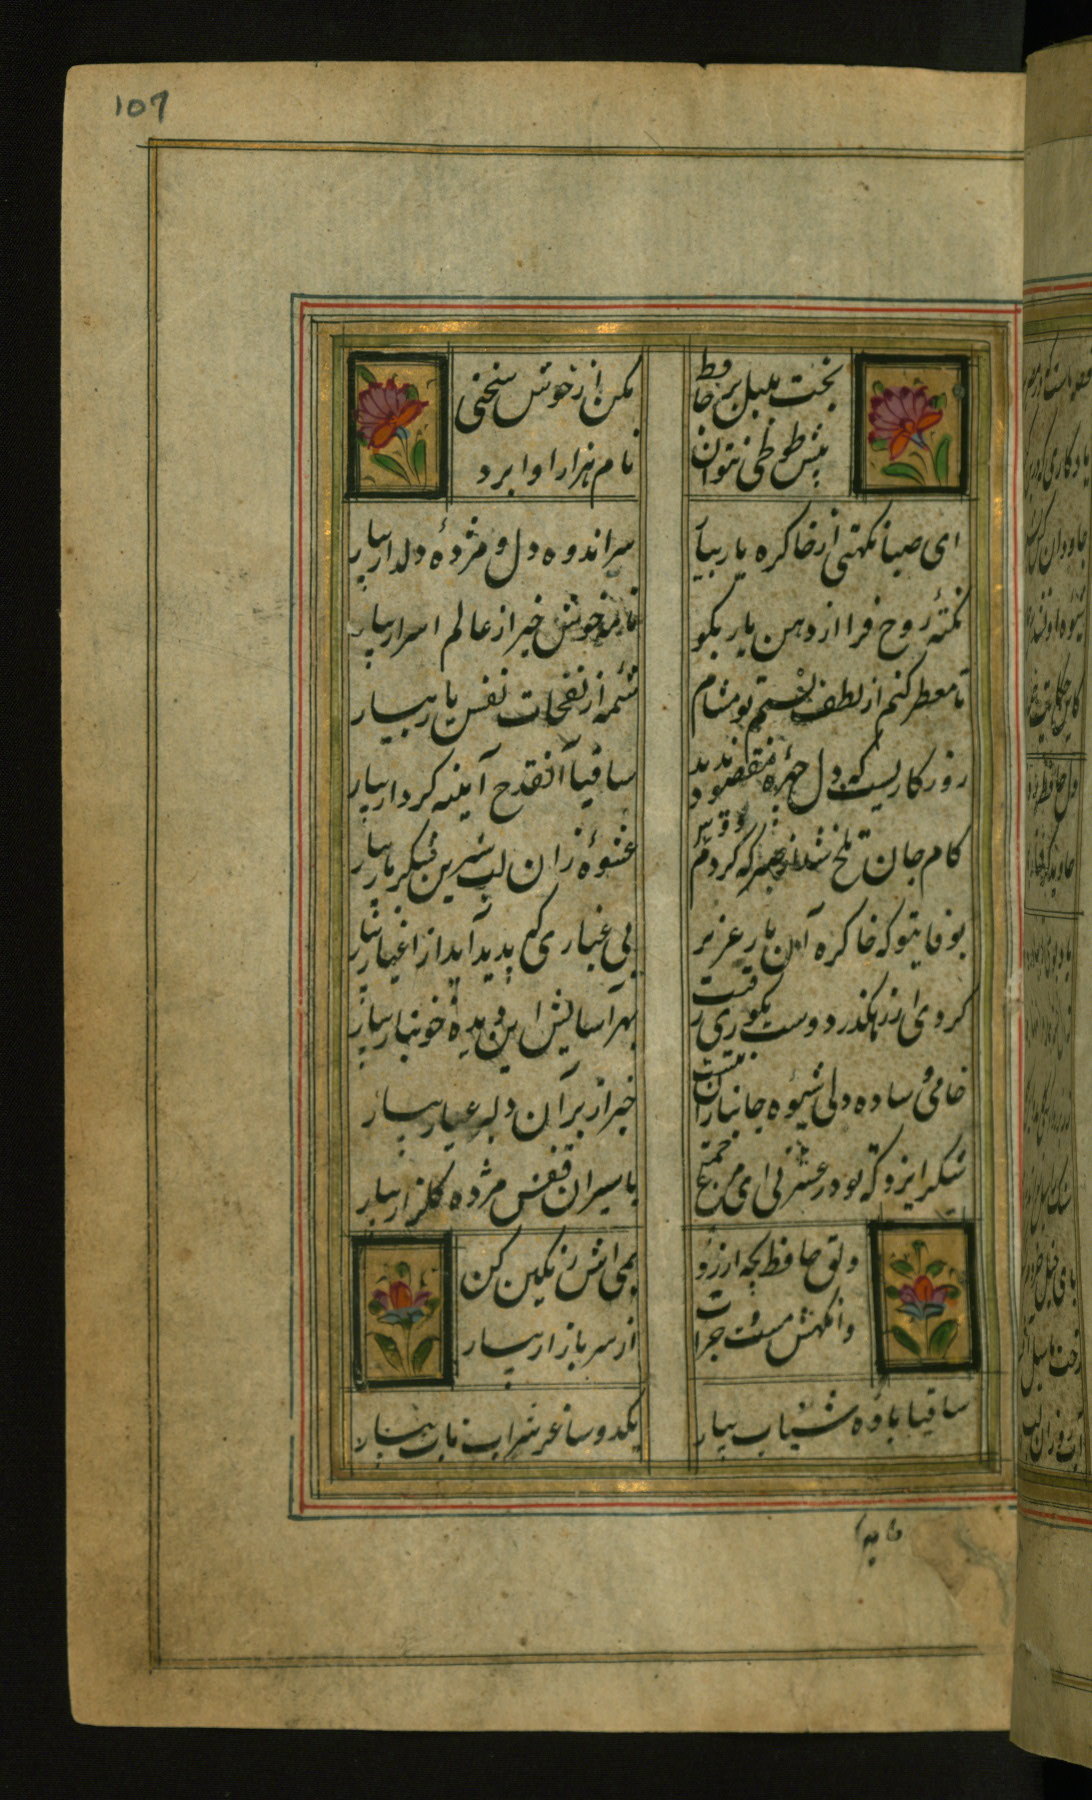 107
بخت بلبل بر حافظ
مکن از خوش سخنی
پیش طوطی نتوان
نام هزار اوا برد
ای صبا نکهتی از خاک ره یار بیار
ببر اندوه دل و مژدهٔ دلدار بیار
نکتهٔ روح فزا از دهن یار بکو
نامهٔ خوش خبر از عالم اسرار بیار
تا معطر کنم از لطف نسیم تو مشام
شمهٔ از نفحات نفس یار بیار
روزکاریست که دل چهرهٔ مقصود ندید
ساقیا آنقدح آینه کردار بیار
کام جان تلخ شد از صبر که کردم
عشوهٔ زان لب شیرین شکربار بیار
بوفای تو که خاک ره آن یار عزیز
بی غباری که پدید آید از اغیار بیار
کردی از رهکذر دوست بکوری رقیب
بهر آسایش این دیدهٔ خونبار بیار
خامی و ساده دلی شیوهٔ جانبازان نیست
خبر از بر آن دلبر عیار بیار
شکر ایزد که تو در عشرتی ای مرغ چمن
باسیران قفس مژدهٔ کلزار بیار
دلق حافظ بچه ارزد
بمی اش رنکین کن
وانکهش مست خراب
از سر بازار بیار
ساقیا بادهٔ شباب بیار
یکدو ساغر شراب ناب بیار